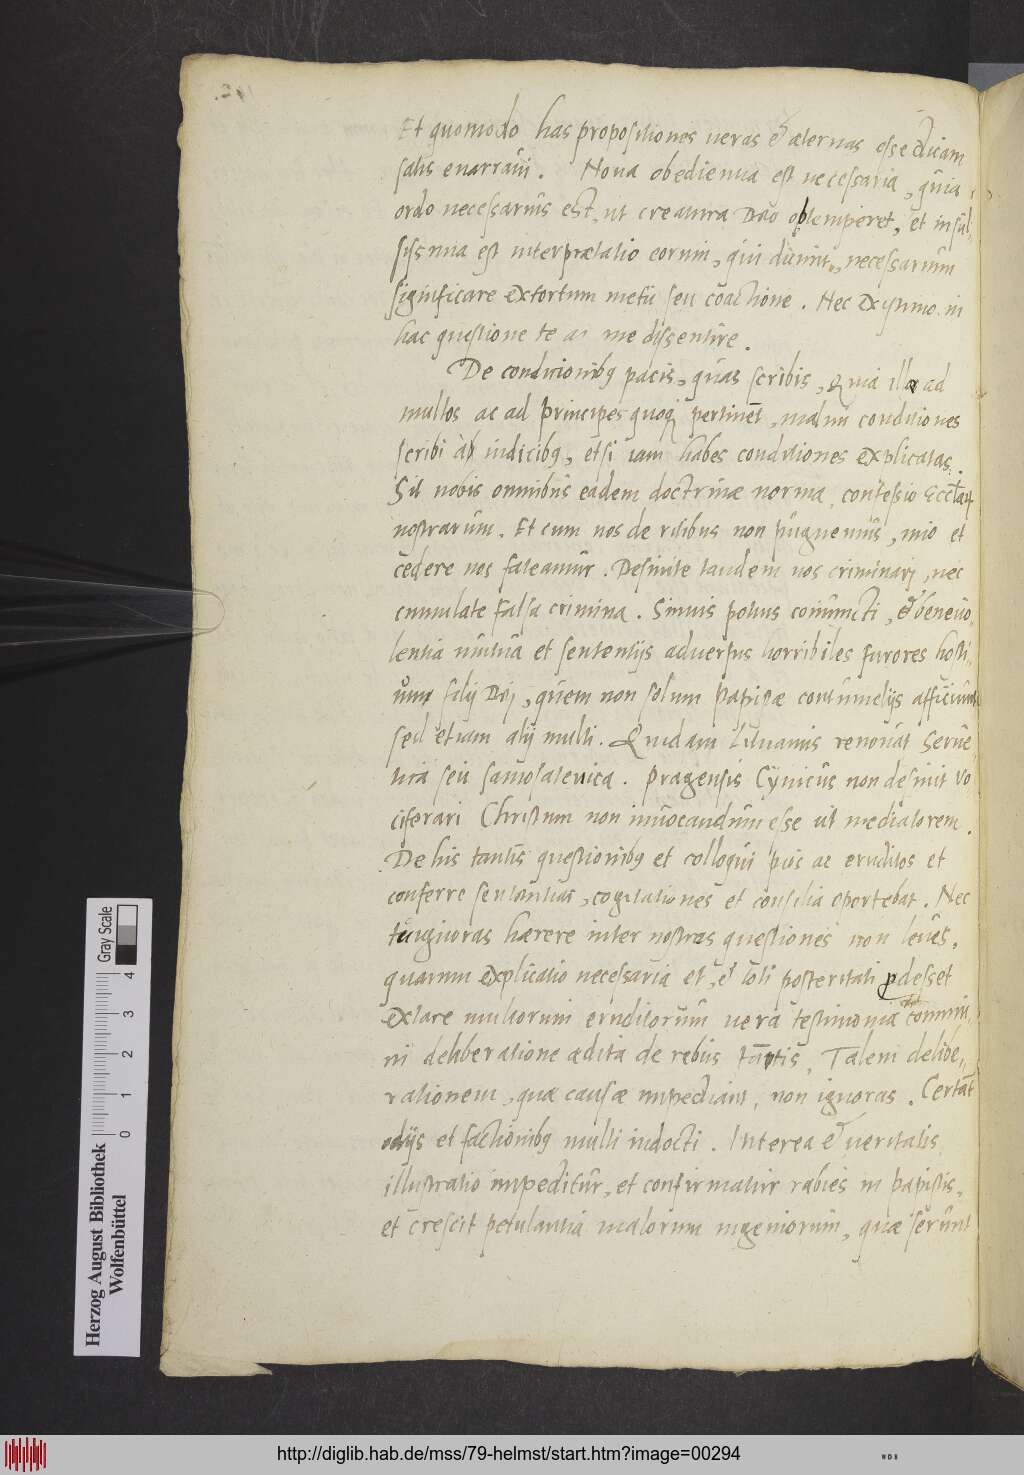 Et quomodo has propositiones ueras & aeternas esse dicam
satis enarraui. Noua obedientia est necessaria, quia
ordo necessarius est, ut creatura Deo obtemperet, et insul-
sissima est interpraetatio eorum, qui dicunt, necessarium
significare extortum metu seu coactione. Nec existimo in
hac questione te a me dissentire.
De conditionibꝫ pacis, quas scribis, Quia illae ad
multos ac ad principes quoqꝫ pertinēt, malim conditiones
scribi ab iudicibꝫ, etsi iam habes conditiones explicatas.
Sit nobis omnibus eadem doctrinae norma, confessio
nostrarum. Et cum nos de ritibus non pugnemus, imo et
cedere nos fateamur. Desinite tandem nos criminari, nec
cumulate falsa crimina. Simus potius coniuncti, & beneuo-
lentia mutua et sententijs aduersus horribiles furores hosti-
um filij Dei, quem non solum papistae contumelijs afficiunt
sed etiam alij multi. Quidam Lituanus renouat Serue
tica seu samosatenica. Pragensis Cynicus non desinit vo-
ciferari Christum non inuocandum esse ut mediatorem.
De his tantis questionibꝫ et colloqui pios ac eruditos et
conferre sententias, cogitationes et consilia oportebat. Nec
tu ignoras haerere inter nostros questiones non leues,
quarum explicatio necessaria et, & toti posteritati ꝓdesset
extare multorum eruditorum uera testimonia commu
ni deliberatione aedita de rebus tantis. Talem delibe-
rationem, quae causae impediant, non ignoras. Certāt
odijs et factionibꝫ multi indocti. Interea & ueritatis
illustratio impeditur, et confirmatur rabies in papistis,
et crescit petulantia malorum ingeniorum, quae serunt
Herzog August Bibliothek
Wolfenbüttel
Gray Scale
0 1 2 3 4
http://diglib.hab.de/mss/79-helmst/start.htm?image=00294